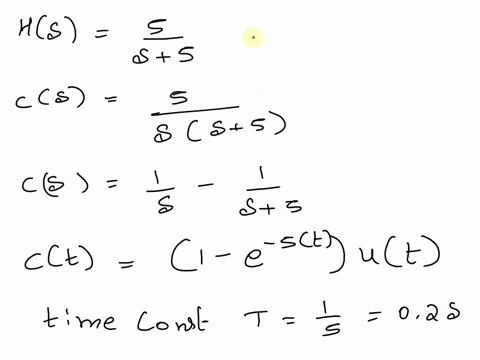 H(s) = 5/(s+5)
C(s) = 5/(s(s+5))
C(s) = 1/s - 1/(s+5)
c(t) = (1 - e^-5(t)) u(t)
time const T = 1/5 = 0.2s